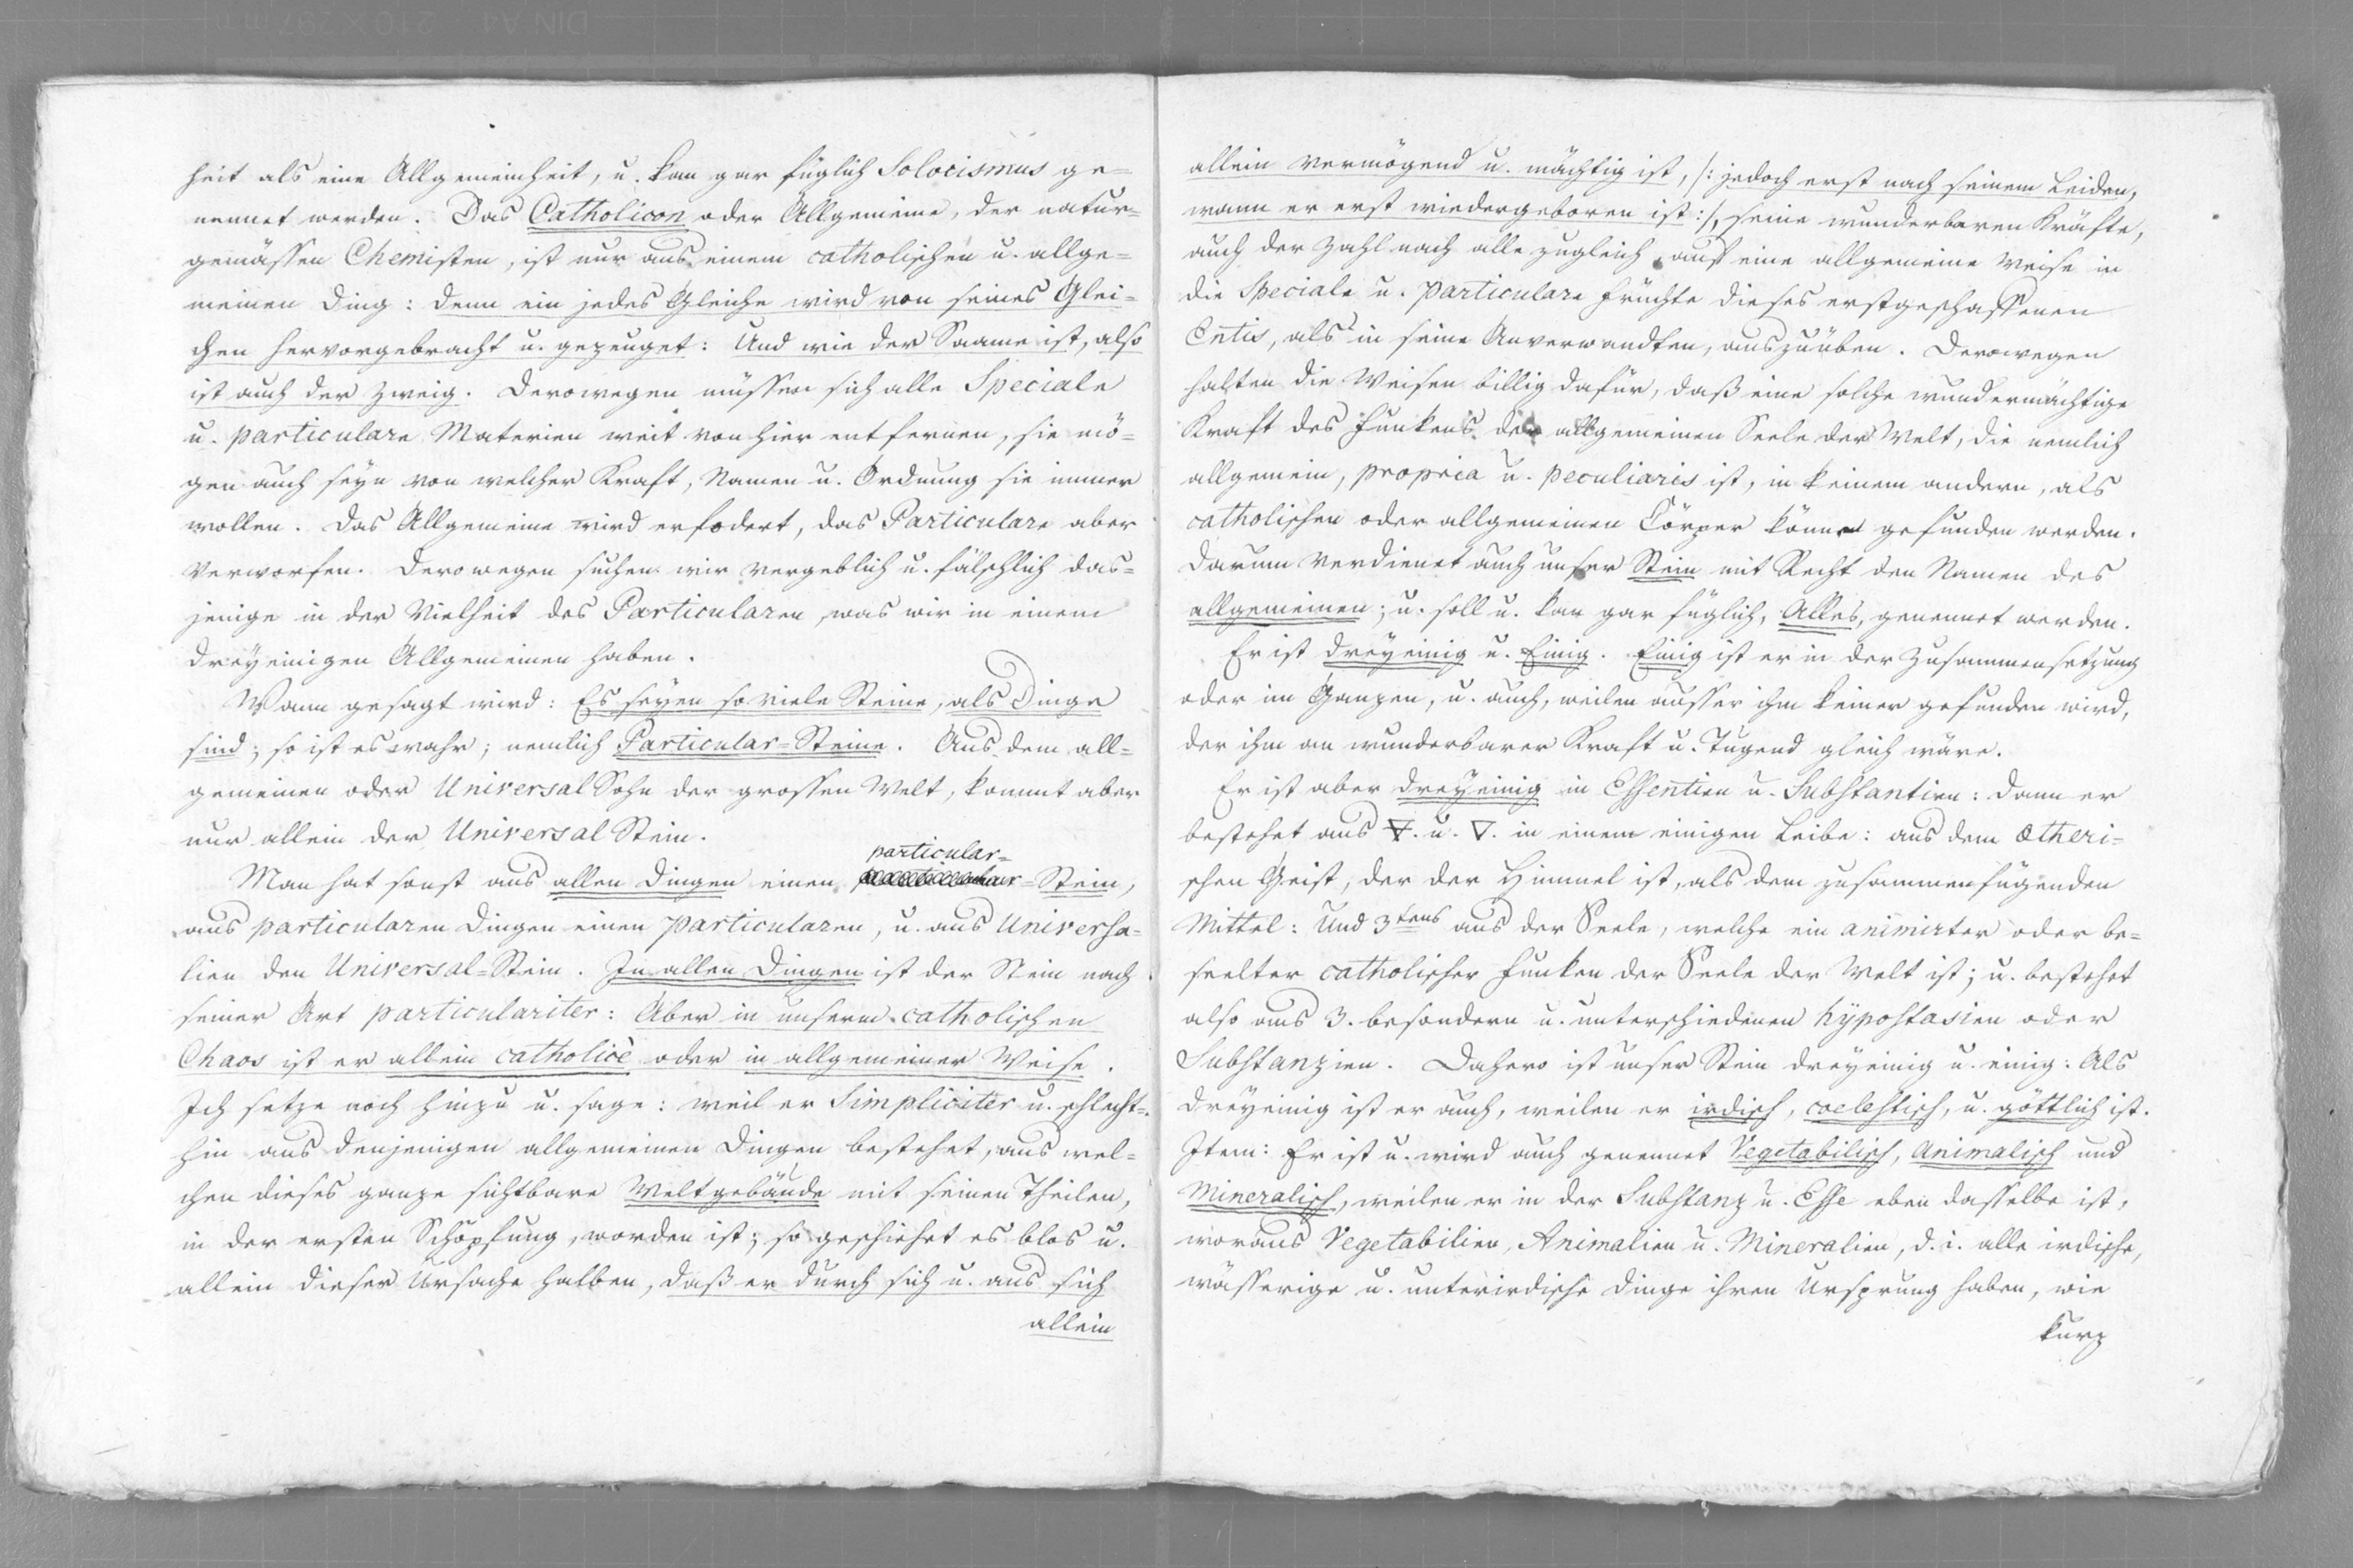 heit als eine Allgemeinheit, u. kan gar füglich Solocismus ge=
nennet werden. Das Catholicon oder Allgemeine, der natur=
gemässen Chemisten, ist nur aus einem catholischen u. allge=
meinen Ding: denn ein jedes Gleiche wird von seines Glei=
chen hervorgebracht u. gezeuget: Und wie der Saame ist, also
ist auch der Zweig. Derowegen müssen sich alle Speciale
u. particulare Materien weit von hier entfernen, sie mö=
gen auch seyn von welcher Kraft, Namen u. Ordnung sie immer
wollen. Das Allgemeine wird erfodert, das Particulare aber
verworfen. Derowegen suchen wir vergeblich u. fälschlich das=
jenige in der Vielheit des Particularen, was wir in einem
dreyeinigen Allgemeinen haben.
Wann gesagt wird: Es seyen so viele Steine, als Dinge
sind; so ist es wahr; nemlich Particular=Steine. Aus dem all=
gemeinen oder Universal Sohn der grossen Welt, kommt aber
nur allein der Universal Stein.
particular=
Man hat sonst aus allen Dingen einen =Stein,
aus particularen Dingen einen particularen, u. aus Universa=
lien den Universal=Stein. In allen Dingen ist der Stein nach
seiner Art particulariter: Aber in unserm catholischen
Chaos ist er allein catholicè oder in allgemeiner Weise.
Ich setze noch hinzu u. sage: weil er Simpliciter u. schlecht=
hin aus denjenigen allgemeinen Dingen bestehet, aus wel=
chen dieses ganze sichtbare Weltgebäude mit seinen Theilen,
in der ersten Schöpfung, worden ist; so geschiehet es blos u.
allein dieser Ursache halben, daß er durch sich u. aus sich
allein
allein vermögend u. mächtig ist, /: jedoch erst nach seinem Leiden,
wann er erst wiedergeboren ist :/, seine wunderbaren Kräfte,
auch der Zahl nach alle zugleich auf eine allgemeine Weise in
die Speciale u. particulare Früchte dieses erstgeschaffenen
Entis, als in seine Anverwandten, auszuüben. Derowegen
halten die Weisen billig dafür, daß eine solche wundermächtige
Kraft des Funkens der allgemeinen Seele der Welt, die nemlich
allgemein, propria u. peculiaris ist, in keinem andern, als
catholischen oder allgemeinen Cörper könne gefunden werden.
Darum verdienet auch unser Stein mit Recht den Namen des
allgemeinen; u. soll u. kan gar füglich, Alles, genennet werden.
Er ist dreyeinig u. Einig. Einig ist er in der Zusammensetzung
oder im Ganzen, u. auch, weilen ausser ihm keiner gefunden wird,
der ihm an wunderbarer Kraft u. Tugend gleich wäre.
Er ist aber dreyeinig in Essentien u. Substantien: dann er
bestehet aus 🜃. u. 🜄. in einem einigen Leibe: aus dem Ætheri=
schen Geist, der der Himmel ist, als dem zusammenfügenden
Mittel: Und 3tens aus der Seele, welche ein animirter oder be=
seelter catholischer Funken der Seele der Welt ist; u. bestehet
also aus 3. besondern u. unterschiedenen hypostasien oder
Substanzien. Dahero ist unser Stein dreyeinig u. einig: Als
dreyeinig ist er auch, weilen er irdisch, coelestisch, u. göttlich ist.
Item: Er ist u. wird auch genennet Vegetabilisch, Animalisch und
Mineralisch, weilen er in der Substanz u. Esse eben dasselbe ist,
woraus Vegetabilien, Animalien u. Mineralien, d. i. alle irdische,
wässerige u. unterirdische Dinge ihren Ursprung haben, wie
kurz